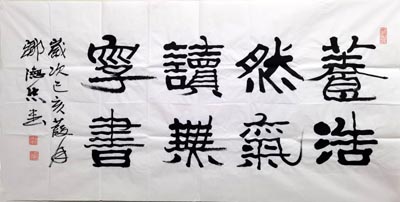 養浩
然氣
讀無
字書
歲次己亥月
鄒書